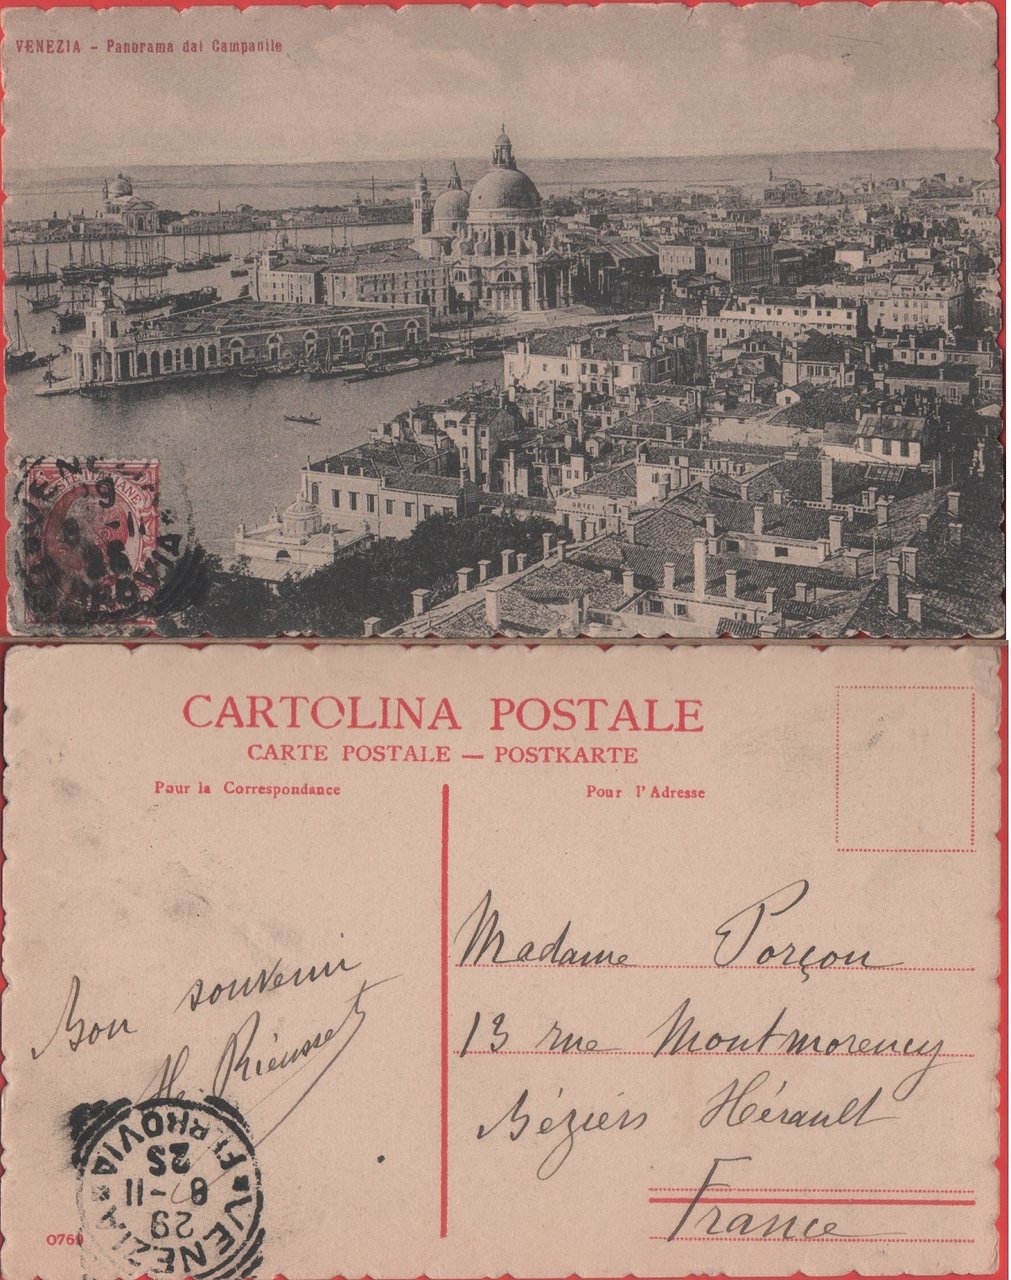 VENEZIA - Panorama dal Campanile
POSTE ITALIANE
HOTEL
CARTOLINA POSTALE
CARTE POSTALE — POSTKARTE
Pour la Correspondance
Pour l'Adresse
Bon souvenir
H. Riéusset
Madame Porçon
13 rue Montmorency
Béziers Hérault
France
VENEZIA
FERROVIA
29
8-11
2S
0769